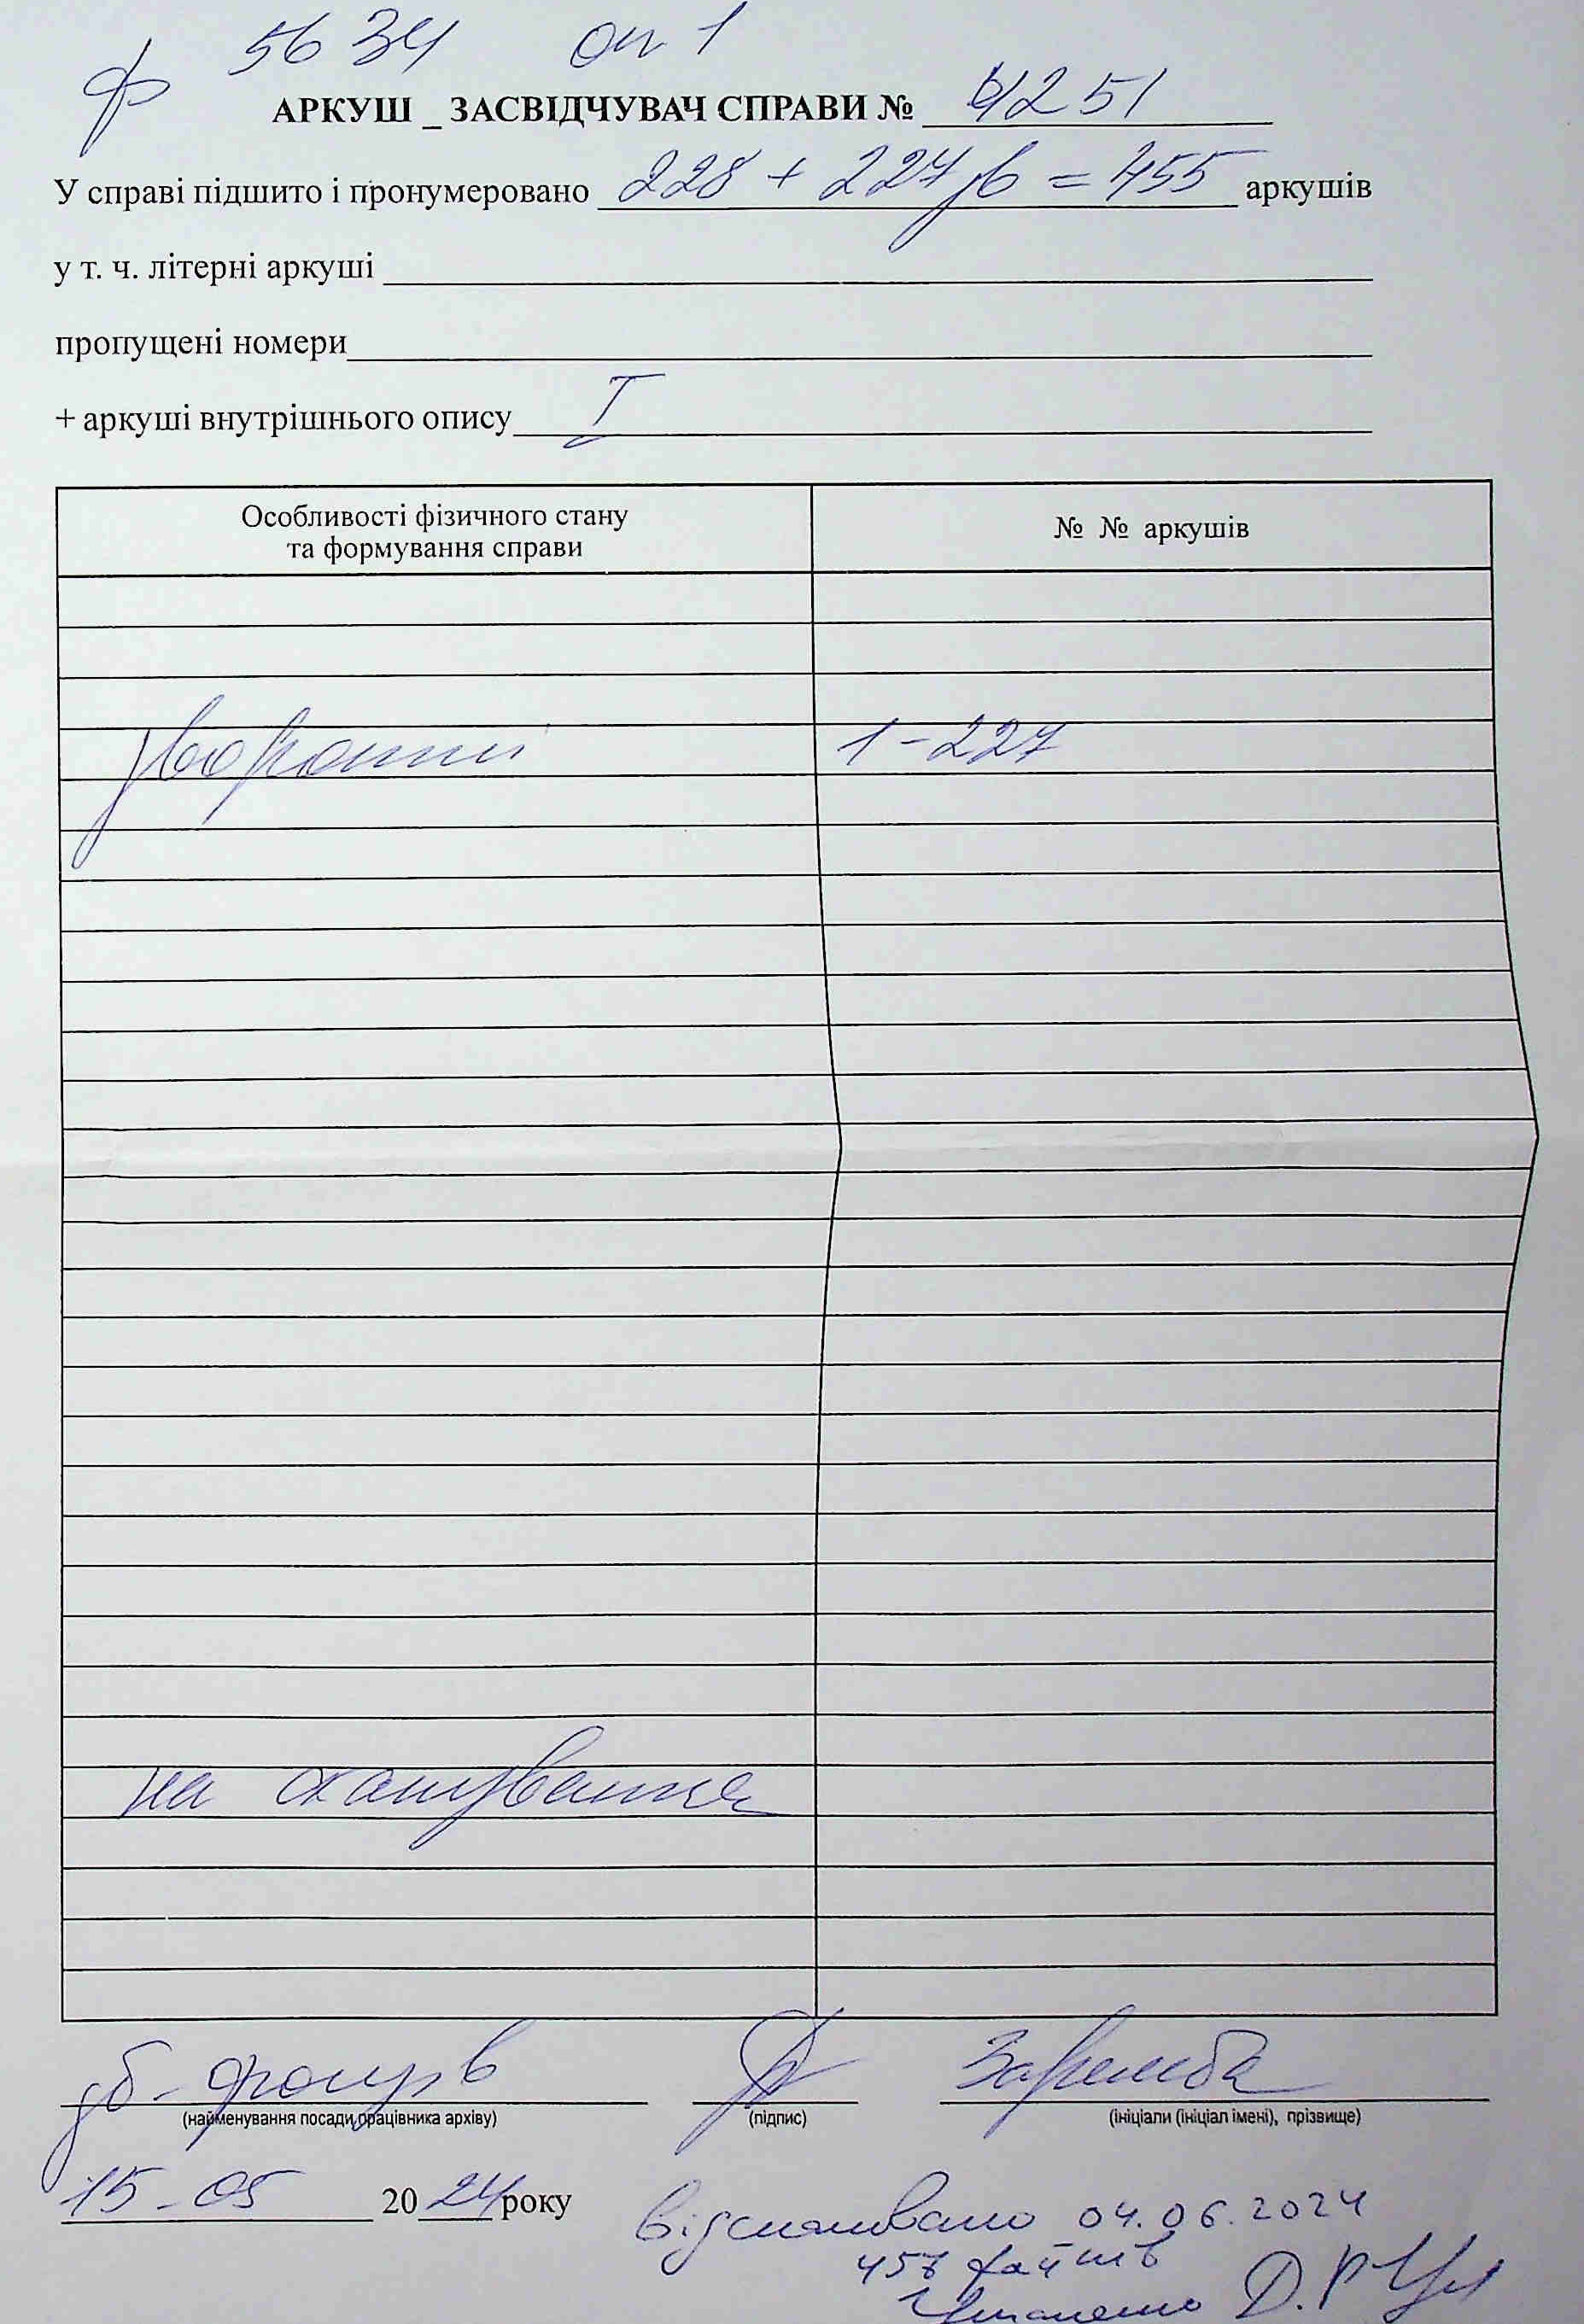 ф 5634 оп 1
АРКУШ _ ЗАСВІДЧУВАЧ СПРАВИ № 4251
У справі підшито і пронумеровано 228 + 227 зв = 455 аркушів
у т. ч. літерні аркуші
пропущені номери
+ аркуші внутрішнього опису I
Особливості фізичного стану
та формування справи
№ № аркушів
звороти 1-227
на сканування
зб. фондів Заремба
(найменування посади працівника архіву) (підпис) (ініціали (ініціал імені), прізвище)
15-05 2024 року
Відскановано 04.06.2024
457 файлів
Д.Р.